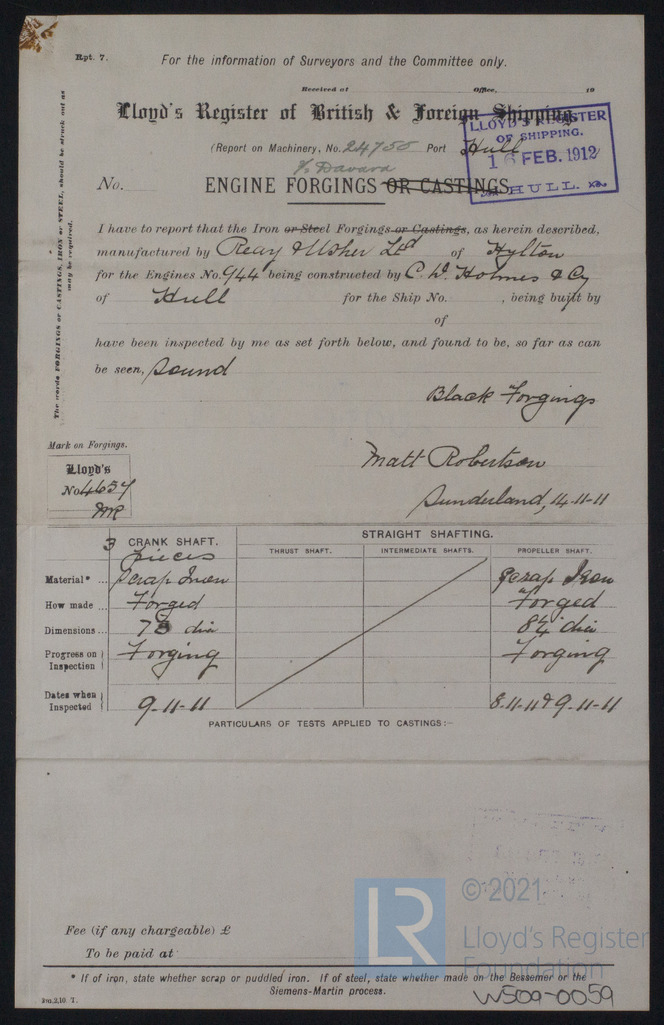 Rpt. 7.
For the information of Surveyors and the Committee only.
Received at Office, 19
Lloyd's Register of British & Foreign Shipping
(Report on Machinery, No. 24755 Port Hull
LLOYD'S REGISTER
OF SHIPPING.
16 FEB. 1912
HULL.
S/. Davara
No. ENGINE FORGINGS OR CASTINGS
The words FORGINGS or CASTINGS, IRON or STEEL, should be struck out as
may be required.
I have to report that the Iron or Steel Forgings or Castings, as herein described,
manufactured by Reay & Usher Ltd of Hylton
for the Engines No. 944 being constructed by C. D. Holmes & Co
of Hull for the Ship No. , being built by
of
have been inspected by me as set forth below, and found to be, so far as can
be seen, Sound
Black Forgings
Mark on Forgings.
Lloyd's
No 4637
MR
Matt Robertson
Sunderland, 14-11-11
3 CRANK SHAFT. STRAIGHT SHAFTING.
pieces THRUST SHAFT. INTERMEDIATE SHAFTS. PROPELLER SHAFT.
Material* ... Scrap Iron Scrap Iron
How made ... Forged Forged
Dimensions ... dia 8¼ dia
Progress on Inspection Forging Forging
Dates when Inspected 9-11-11 8-11-11 & 9-11-11
PARTICULARS OF TESTS APPLIED TO CASTINGS:-
Fee (if any chargeable) £
To be paid at
* If of iron, state whether scrap or puddled iron. If of steel, state whether made on the Bessemer or the
Siemens-Martin process.
LR
© 2021
Lloyd's Register
Foundation
W509-0059